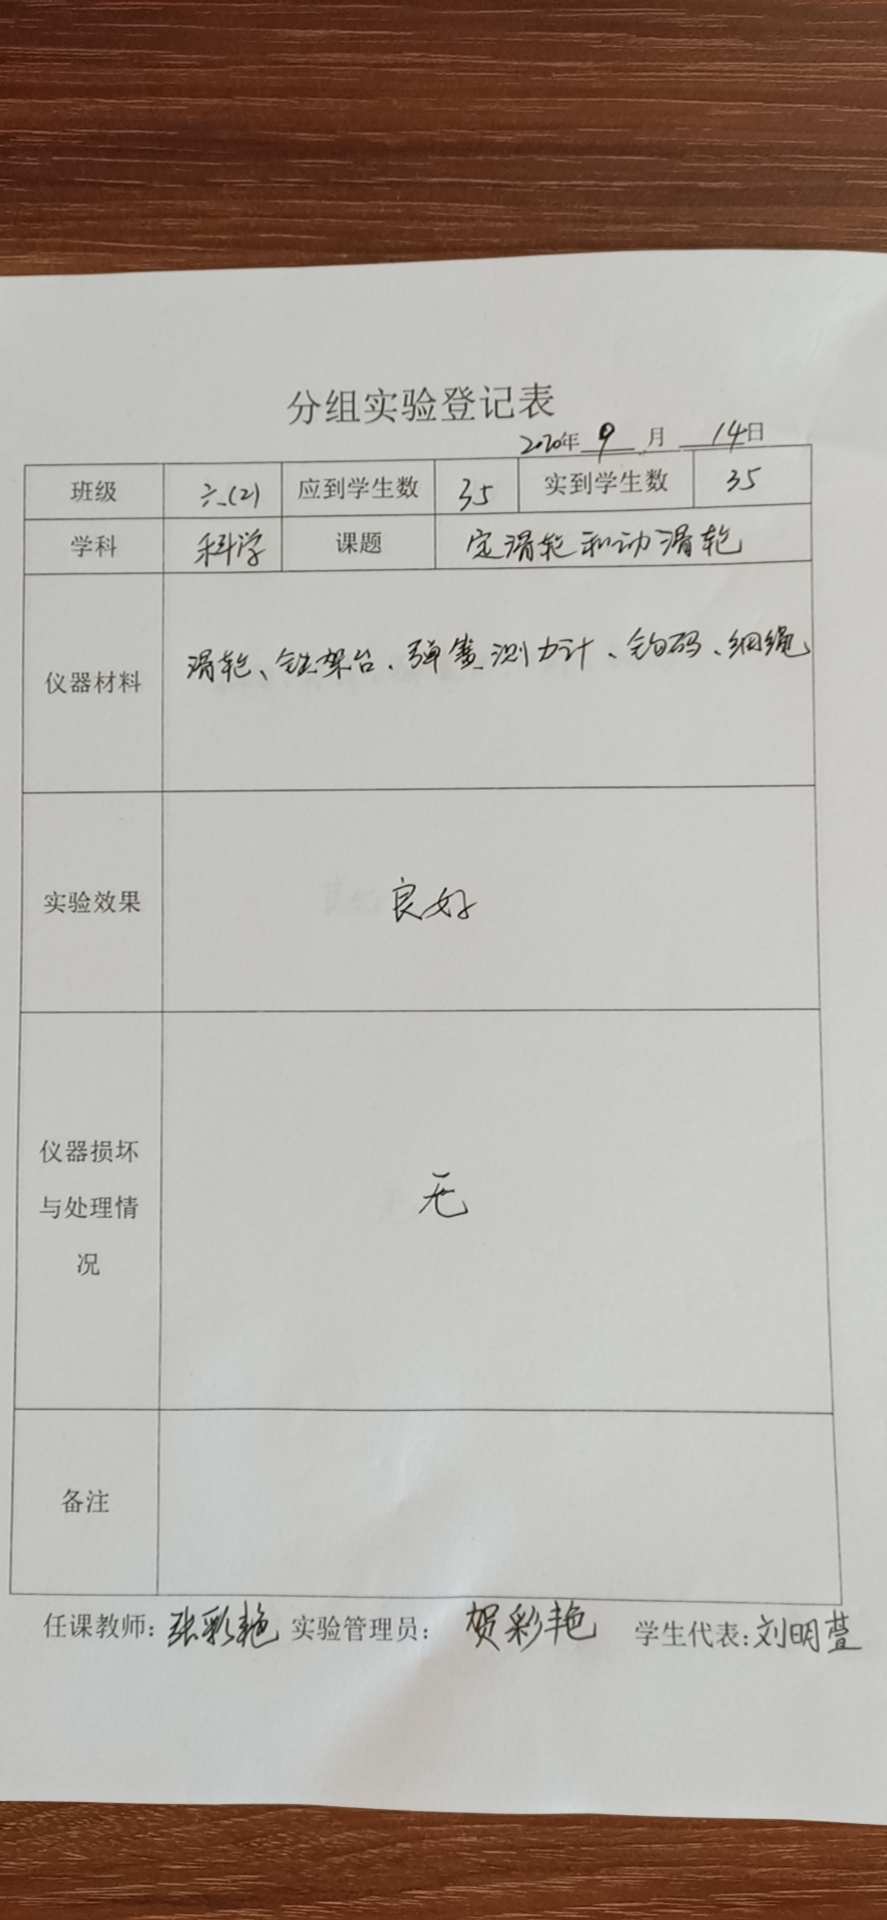 分组实验登记表
2020年 9 月 14日
班级 六(2) 应到学生数 35 实到学生数 35
学科 科学 课题 定滑轮和动滑轮
仪器材料 滑轮、铁架台、弹簧测力计、钩码、细绳
实验效果 良好
仪器损坏
与处理情 无
况
备注
任课教师: 张彩艳 实验管理员: 贺彩艳 学生代表: 刘明萱